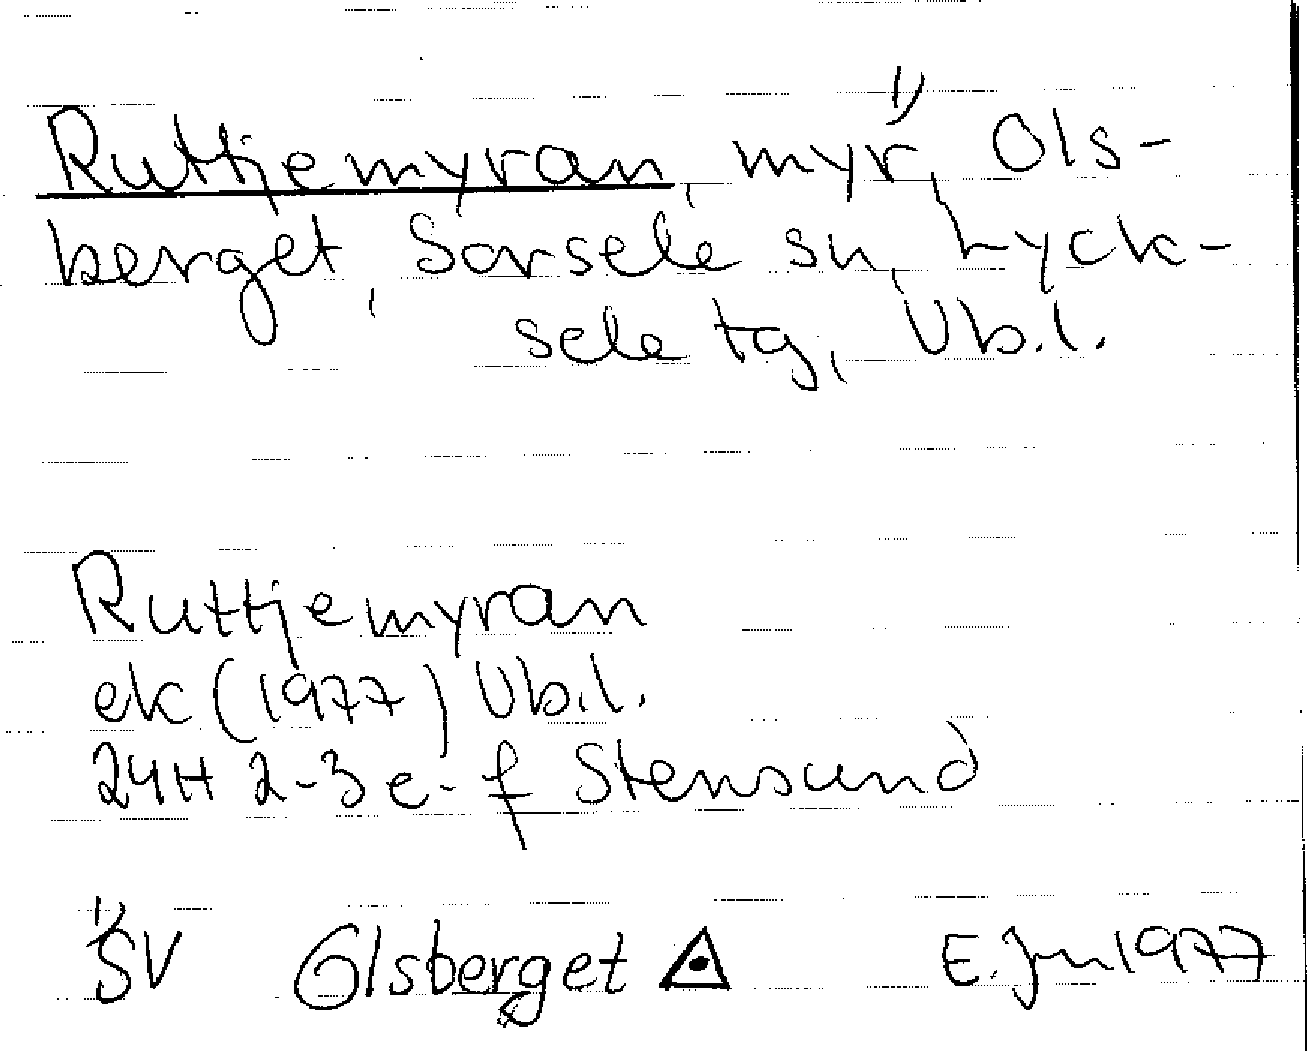 Ruttjemyran, myr¹⁾, Ols-
berget, Sorsele sn, Lyck-
sele tg, Vb.l.
Ruttjemyran
ek (1977) Vb.l.
24H 2-3 e-f Stensund
¹⁾ SV Olsberget
E. Jn 1977